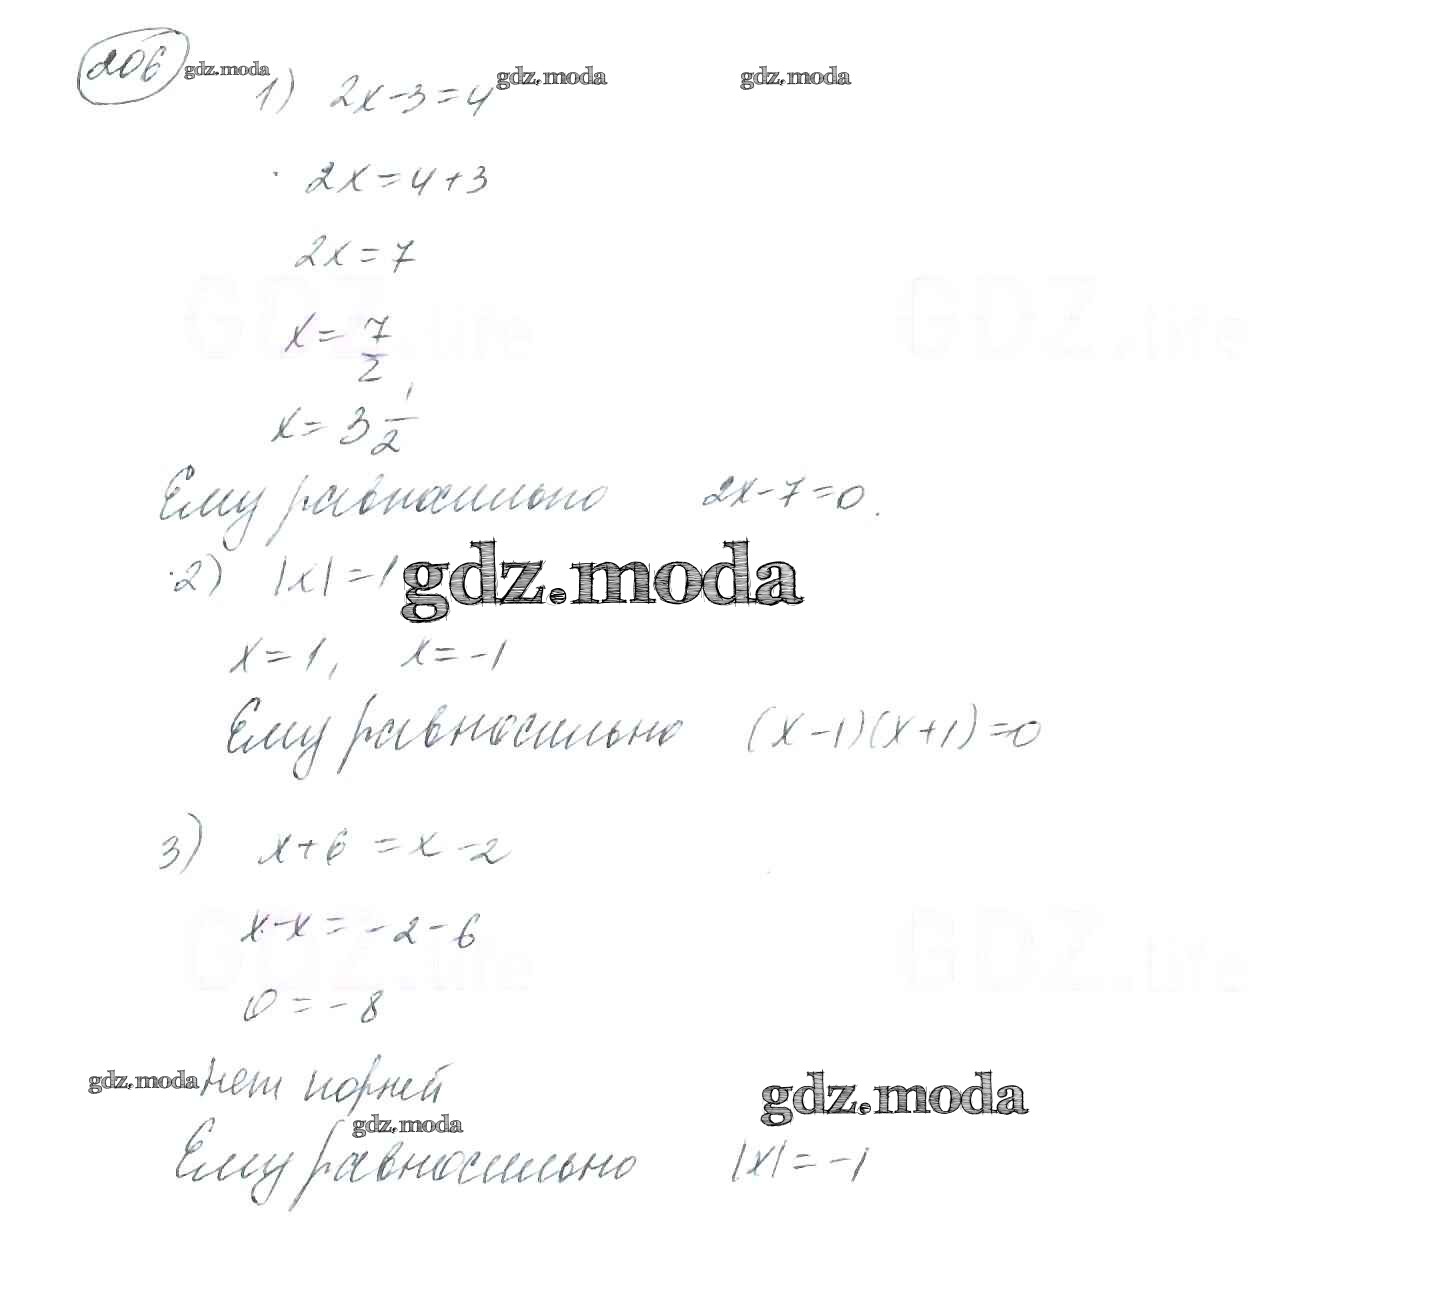 206 gdz.moda gdz.moda gdz.moda
1) 2x-3=4
2x=4+3
2x=7
GDZ.life GDZ.life
x= 7/2
x= 3 1/2
Ему равносильно 2x-7=0.
2) |x|=1 gdz.moda
x=1, x=-1
Ему равносильно (x-1)(x+1)=0
3) x+6=x-2
x-x=-2-6
GDZ.life GDZ.life
0=-8
gdz.moda нет корней gdz.moda
gdz.moda
Ему равносильно |x|=-1